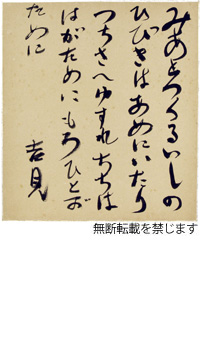 みあとつくるいしの
ひびきはあめにいたり
つちさへゆすれちちは
はがためにもろひとが
ために
吉見
無断転載を禁じます